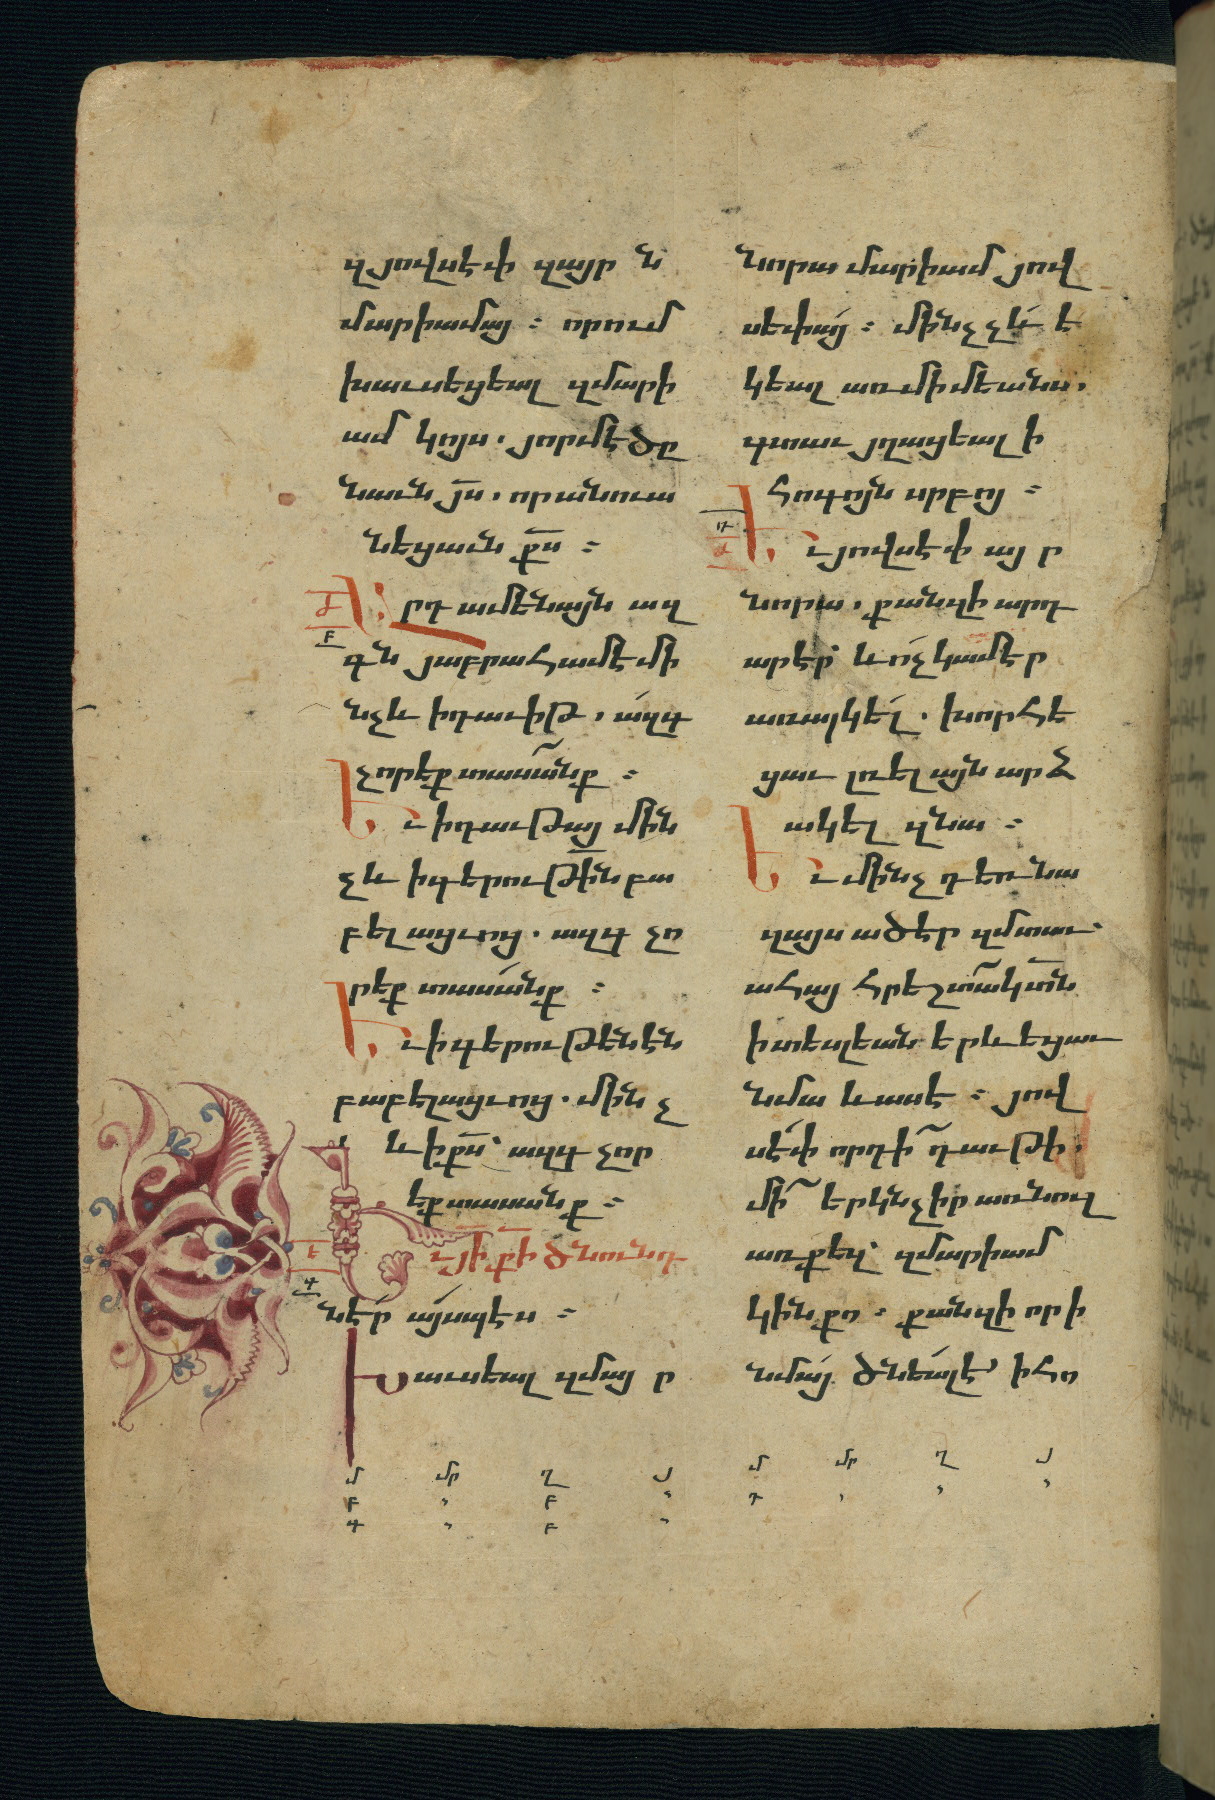 զյովսէփ զայր ն
մարիամայ ։ որում
խաւսեցեալ զմարի
ամ կոյս . յորմէ ծը
նաւն յս . որ անուա
նեցաւն քս ։
Արդ ամենայն ազ
գն յաբրահամէ մի
նչև ի դաւիթ , ազգ
չորեքտասանք ։
Եւ ի դաւթայ մին
չև ի գերութին բա
բելացւոց . ազգ չո
րեքտասանք ։
Եւ ի գերութենէն
բաբելացւոց . մին չ
և ի քս՝ ազգ չոր
եքտասանք ։
Եւ յի քի ծնունդ
ն էր այսպէս ։
Խաւսեալ զմայ ր
նորա մարիամ յով
սեփայ ։ մինչ չև ե
կեալ առ միմեանս .
գտաւ յղացեալ ի
հոգոյն սրբոյ ։
Եւ յովսէփ այ ր
նորա , քանզի արդ
ար էր՝ և ոչ կամէր
առակել . խորհե
ցաւ լռելայն արձ
ակել զնա ։
Եւ մինչ դեռ նա
զայս ածէր զմտաւ .
ահայ հրեշտակ տն
ի տեսլեան երևեցաւ
նմա և ասէ ։ յով
սէփ որդի դաւթի ,
մի երկնչիր առնուլ
առ քեզ՝ զմարիամ
կին քո ։ քանզի որ ի
նմայ ծնեալ է ի հո
մ մր ղ յ
բ բ
գ բ
մ մր ղ յ
դ